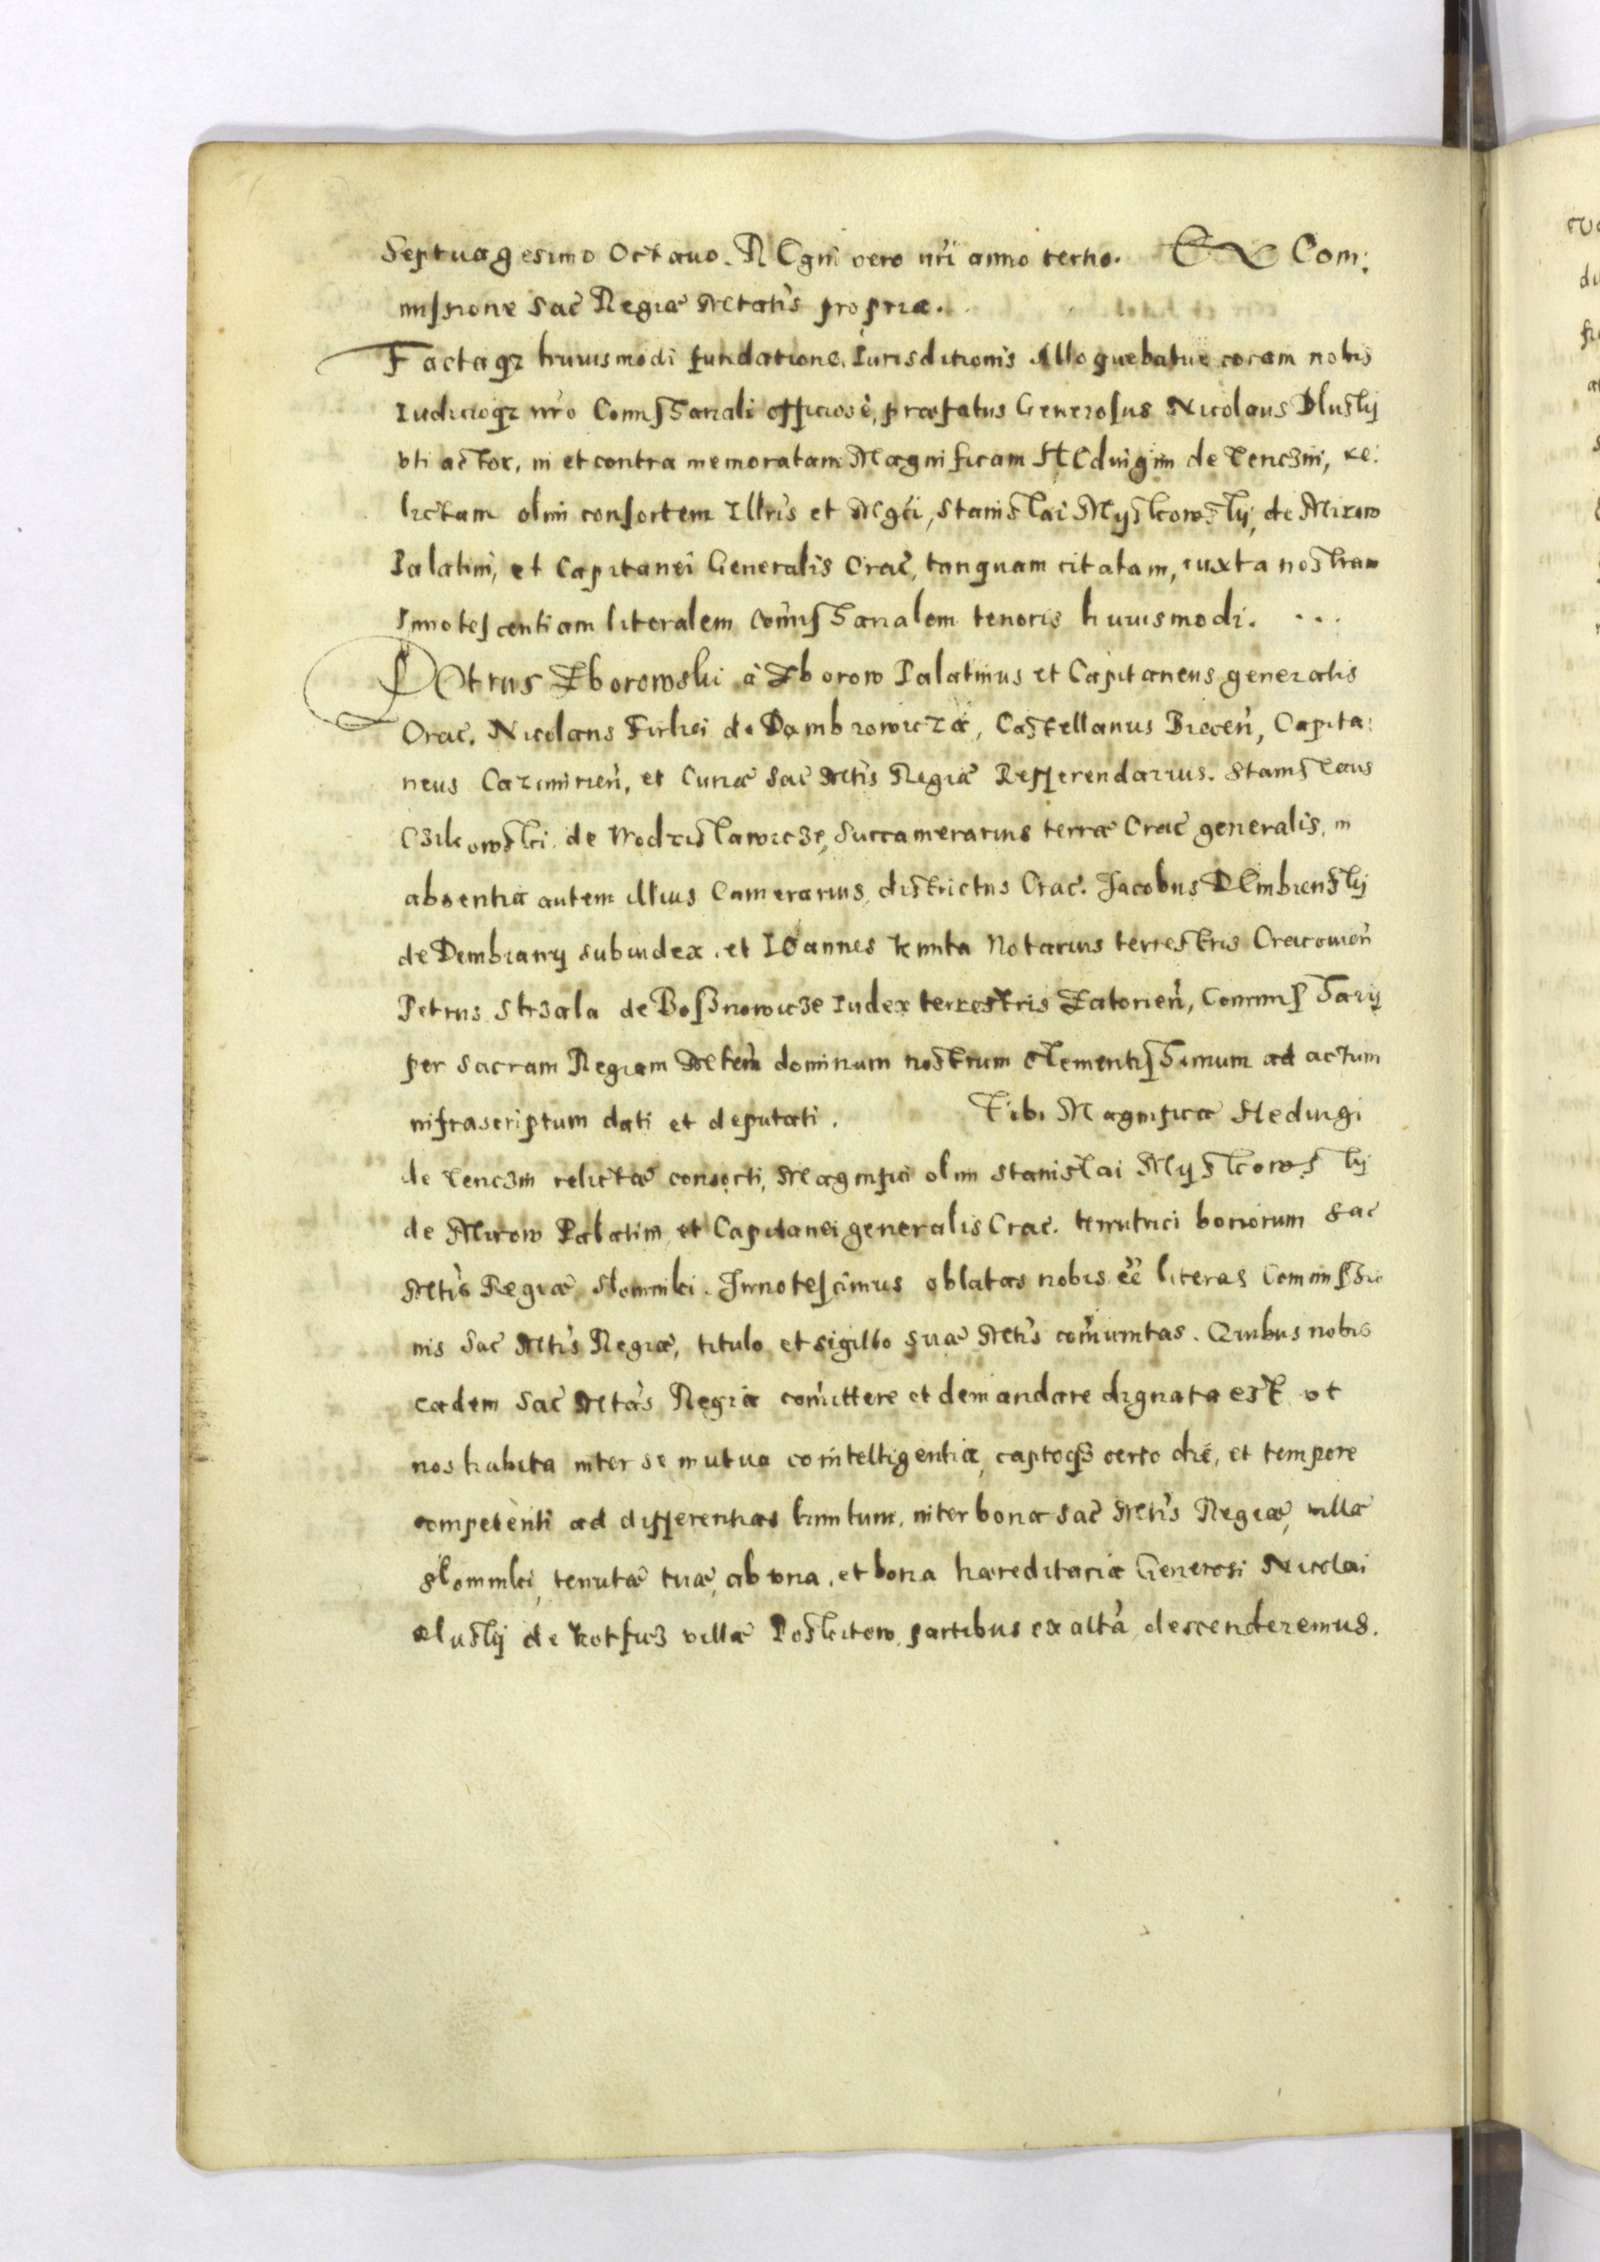 Septuagesimo Octavo. REgni vero nri anno tertio. EX Com:
missione Sac Regiæ Mtatis propriæ.
Factaqz huiusmodi fundatione Iurisditionis Alloquebatur coram nobis
Iudicioqz nro Comissariali officiosè, præfatus Generosus Nicolaus Dlusky
vti actor, in et contra memoratam Magnificam HEduigim de Tenczin, re:
lictam olim consortem Illris et Mgci, Stanislai Myskowsky, de Mirow
Palatini, et Capitanei Generalis Crac, tanquam citatam, iuxta nostram
Innotescentiam literalem Comissarialem tenoris huiusmodi. ...
PEtrus Zborowski à Zborow Palatinus et Capitaneus generalis
Crac. Nicolaus Firlei de Dambrowicza, Castellanus Biecen, Capita:
neus Cazimirien, et Curiæ Sac Mtis Regiæ Referendarius. Stanislaus
Czikowski de Wodzislawicze, Succamerarius terræ Crac generalis, in
absentia autem illius Camerarius districtus Crac. Jacobus DEmbiensky
de Dembiany subiudex. et IOannes Kmita Notarius terrestris Cracouien
Petrus Strzala de Bossnowicze Iudex terrestris Zatorien, Commissarij
per Sacram Regiam Mtem dominum nostrum clementissimum ad actum
infrascriptum dati et deputati. Tibi Magnificæ Heduigi
de Tenczin relictæ consorti, Magnifici olim Stanislai Myskowsky
de Mirow Palatini et Capitanei generalis Crac. tenutrici bonorum Sac
Mtis Regiæ Slomniki. Innotescimus oblatas nobis eē literas Commissio
nis Sac Mtis Regiæ, titulo et sigillo suæ Mtis comunitas. Quibus nobis
eadem Sac Mtas Regia comittere et demandare dignata est vt
nos habita inter se mutua cointelligentia, captoqz certo die, et tempore
competenti ad differentias limitum, inter bona Sac Mtis Regiæ, villæ
Slomniki, tenutæ tuæ, ab vna, et bona hæreditaria Generosi Nicolai
Dlusky de Kotficz villæ Poskitow, partibus ex altā descenderemus.